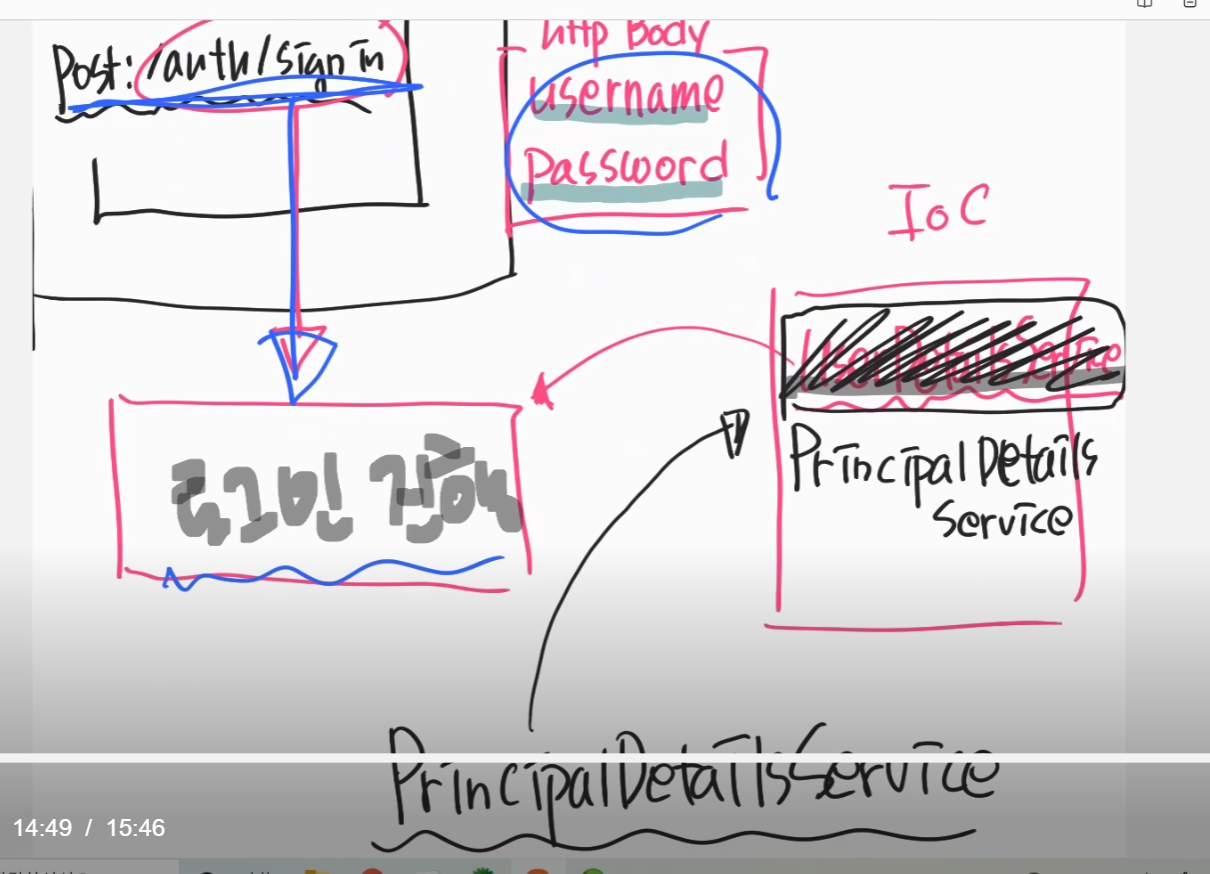 Post: /auth/signin
http Body
username
Password
IoC
UserDetailsService
PrincipalDetails
Service
로그인 진행
PrincipalDetailsService
14:49 / 15:46